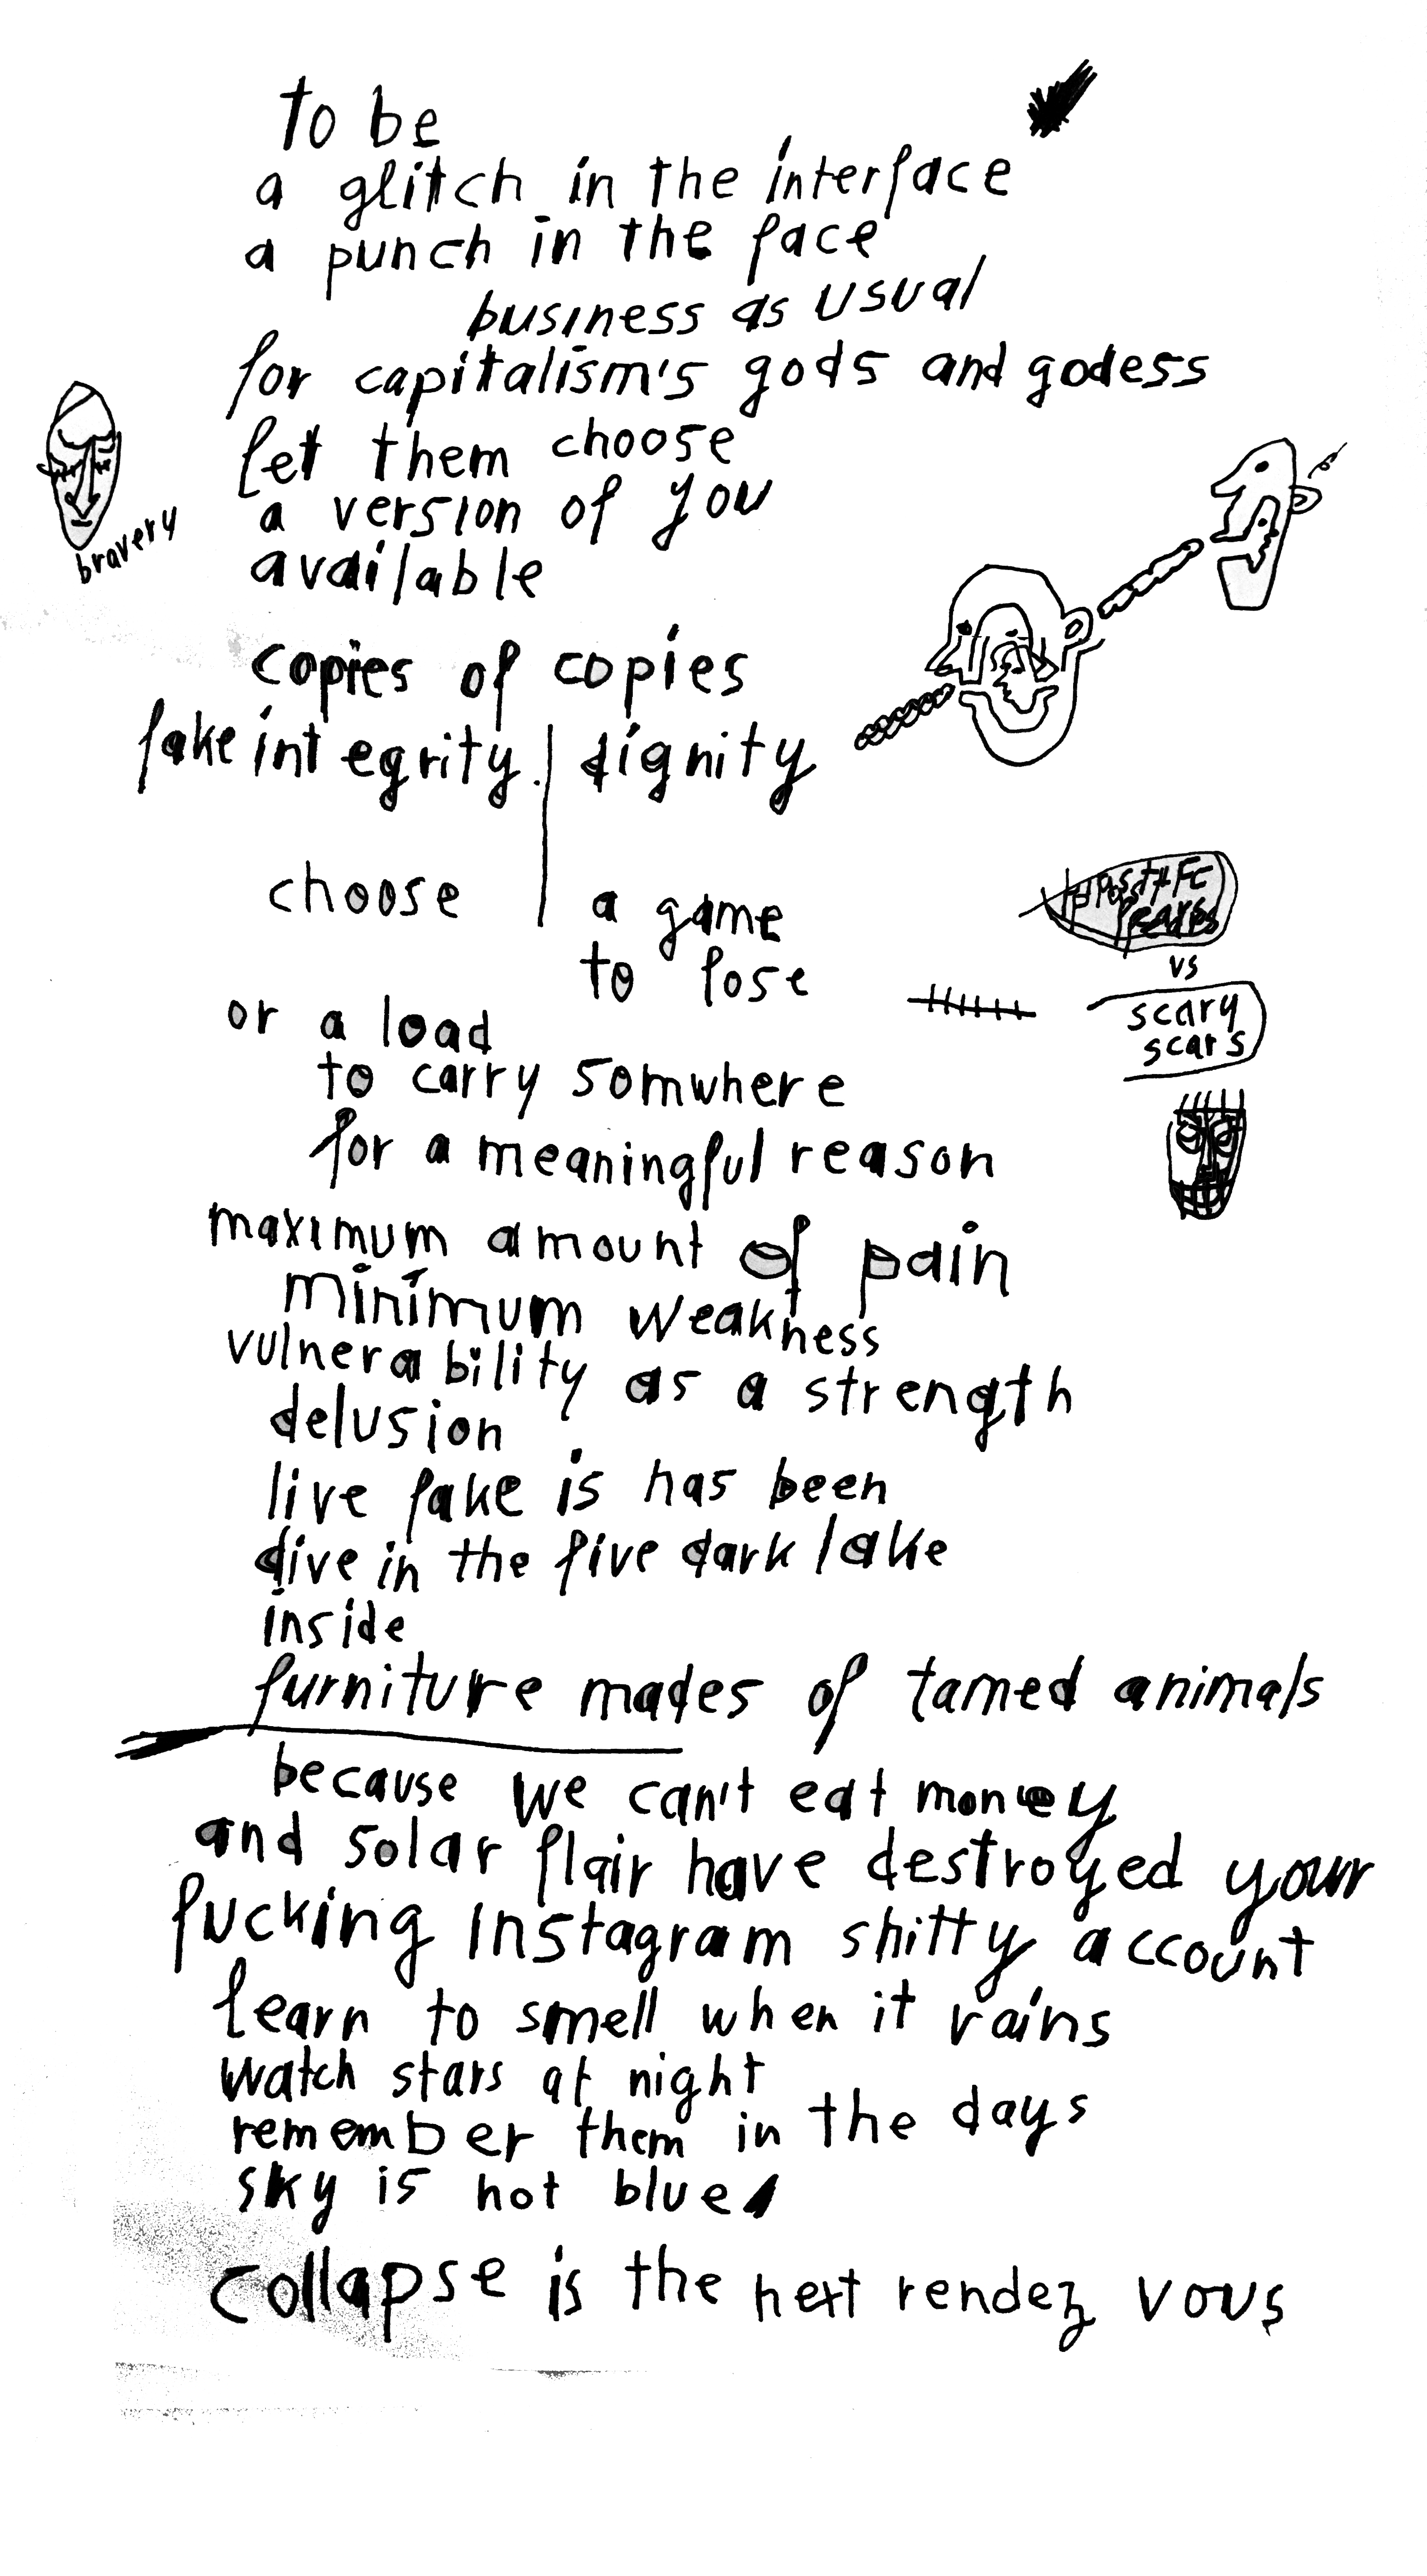 to be
a glitch in the interface
a punch in the face
business as usual
for capitalism's gods and godess
let them choose
a version of you
available
bravery
copies of copies
fake integrity. dignity
choose
a game
to lose
vs
scary
scars
or a load
to carry somwhere
for a meaningful reason
maximum amount of pain
minimum weakness
vulnerability as a strength
delusion
live fake is has been
dive in the five dark lake
inside
furniture mades of tamed animals
because we can't eat money
and solar flair have destroyed your
fucking Instagram shitty account
learn to smell when it rains
watch stars at night
remember them in the days
sky is not blue
collapse is the next rendez vous